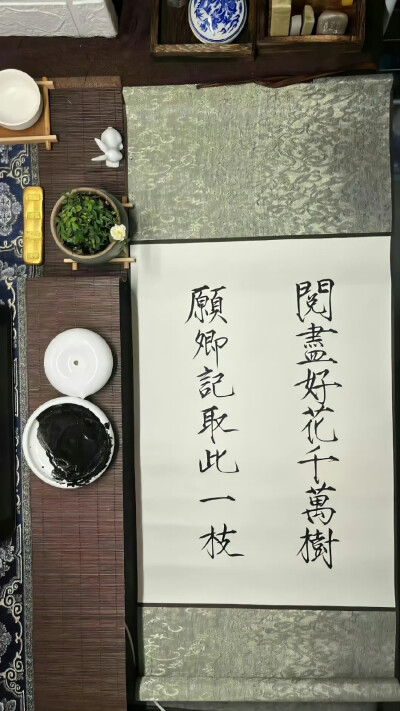 閱盡好花千萬樹
願卿記取此一枝